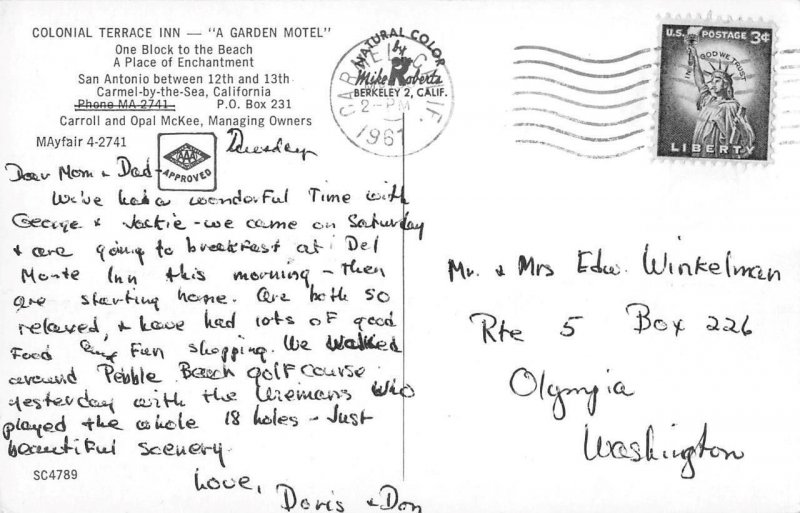 COLONIAL TERRACE INN — "A GARDEN MOTEL"
One Block to the Beach
A Place of Enchantment
San Antonio between 12th and 13th
Carmel-by-the-Sea, California
Phone MA-2741 P.O. Box 231
Carroll and Opal McKee, Managing Owners
MAyfair 4-2741
AAA
APPROVED
NATURAL COLOR
by
Mike Roberts
BERKELEY 2, CALIF.
CARMEL CALIF.
2-PM
1961
U.S. POSTAGE 3¢
IN GOD WE TRUST
LIBERTY
Tuesday
Dear Mom & Dad-
We've had a wonderful Time with
George & Jackie - we came on Saturday
& are going to breakfast at Del
Monte Inn this morning - then
are starting home. Are both so
relaxed, & have had lots of good
Food and Fun shopping. We walked
around Pebble Beach golf course
yesterday with the Wiemans who
played the whole 18 holes - Just
beautiful scenery.
Love,
Doris & Don
SC4789
Mr. & Mrs Edw. Winkelman
Rte 5 Box 226
Olympia
Washington